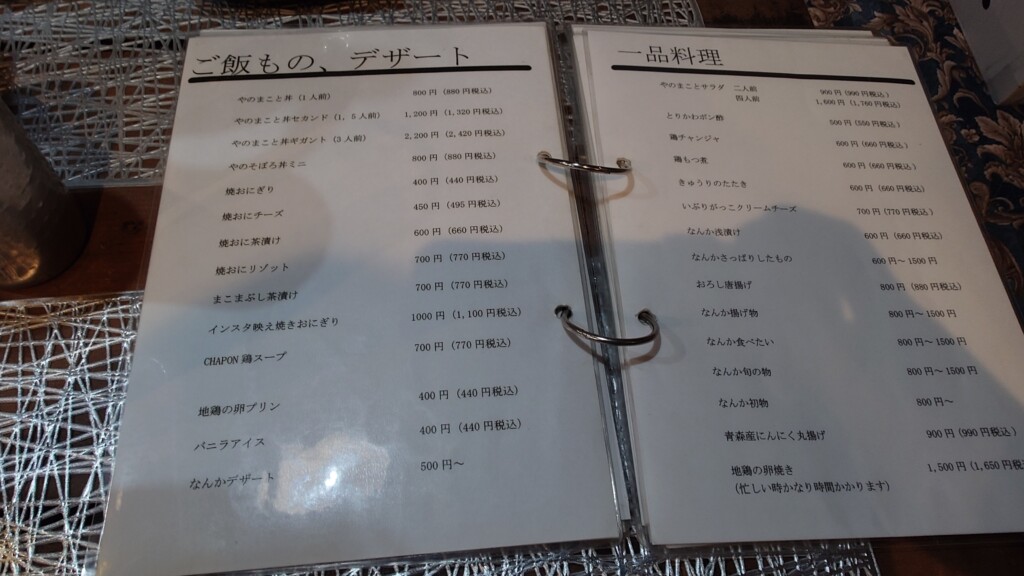 ご飯もの、デザート
やのまこと丼（1人前） 800円（880円税込）
やのまこと丼セカンド（1，5人前） 1,200円（1,320円税込）
やのまこと丼ギガント（3人前） 2,200円（2,420円税込）
やのそぼろ丼ミニ 800円（880円税込）
焼おにぎり 400円（440円税込）
焼おにチーズ 450円（495円税込）
焼おに茶漬け 600円（660円税込）
焼おにリゾット 700円（770円税込）
まこまぶし茶漬け 700円（770円税込）
インスタ映え焼きおにぎり 1000円（1,100円税込）
CHAPON鶏スープ 700円（770円税込）
地鶏の卵プリン 400円（440円税込）
バニラアイス 400円（440円税込）
なんかデザート 500円～
一品料理
やのまことサラダ 二人前 900円（990円税込）
四人前 1,600円（1,760円税込）
とりかわポン酢 500円（550円税込）
鶏チャンジャ 600円（660円税込）
鶏もつ煮 600円（660円税込）
きゅうりのたたき 600円（660円税込）
いぶりがっこクリームチーズ 700円（770円税込）
なんか浅漬け 600円（660円税込）
なんかさっぱりしたもの 600円～1500円
おろし唐揚げ 800円（880円税込）
なんか揚げ物 800円～1500円
なんか食べたい 800円～1500円
なんか旬の物 800円～1500円
なんか初物 800円～
青森産にんにく丸揚げ 900円（990円税込）
地鶏の卵焼き 1,500円（1,650円税
（忙しい時かなり時間かかります）